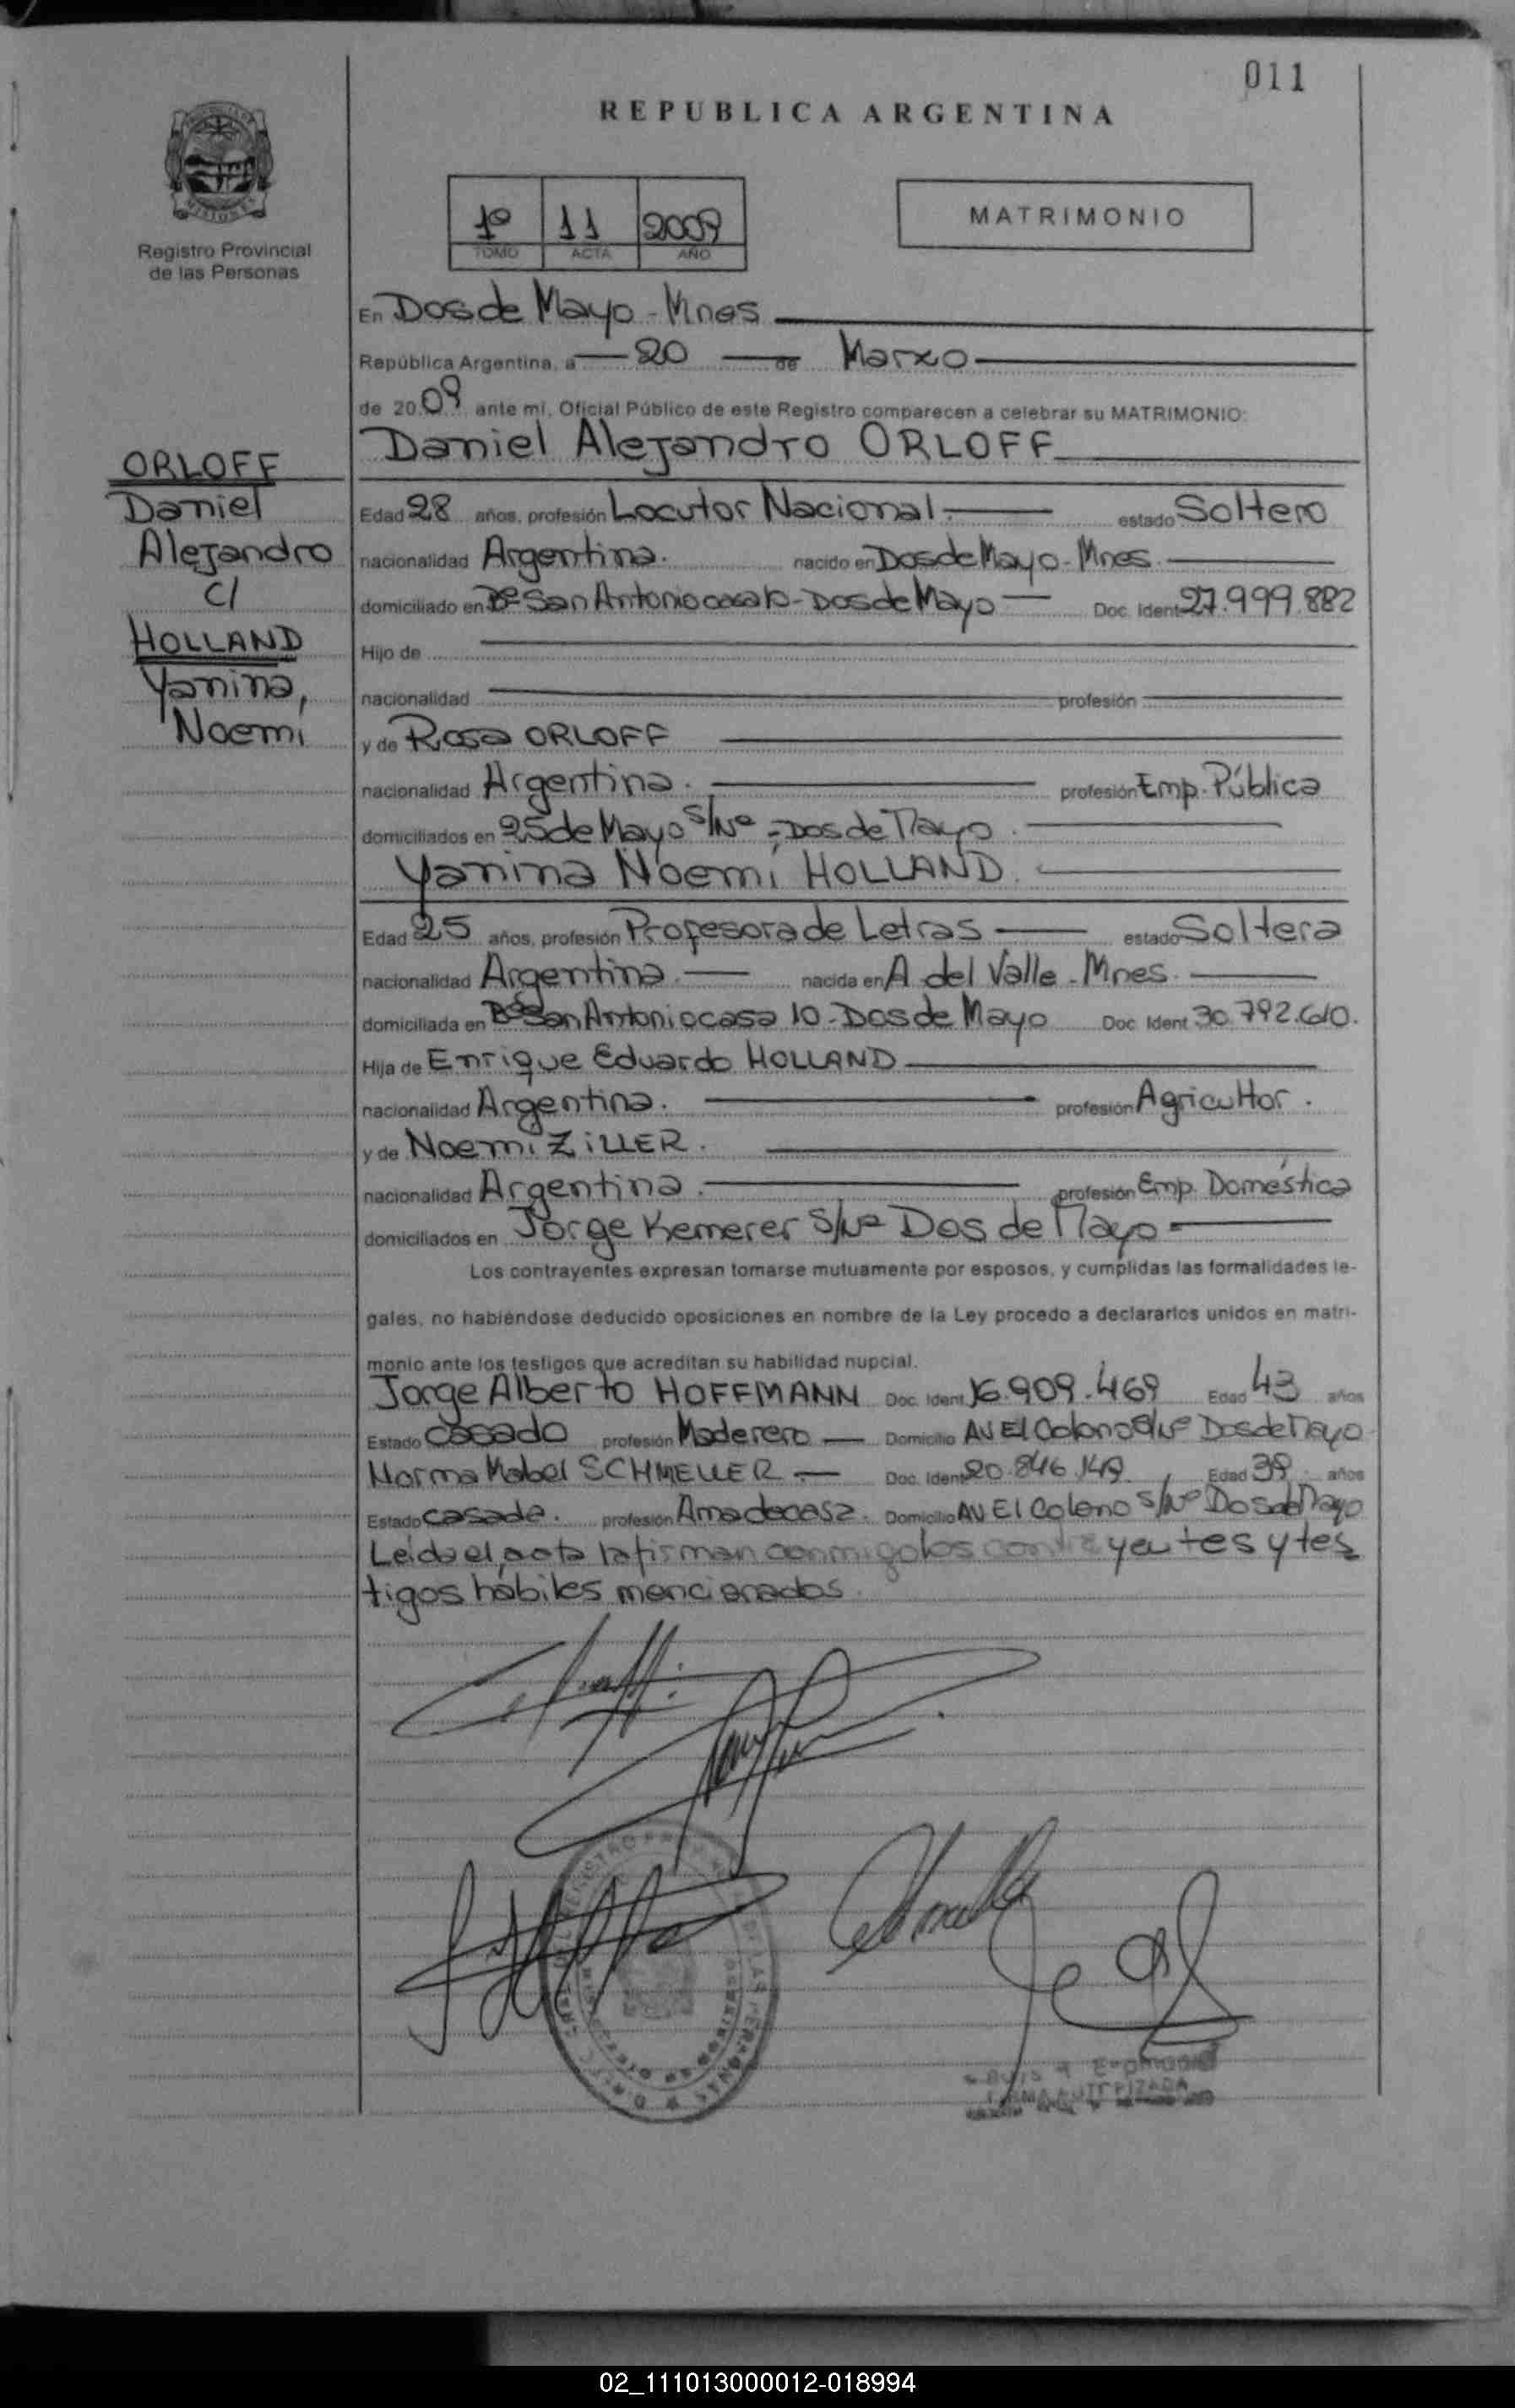 011
REPUBLICA ARGENTINA
1º 11 2009
TOMO ACTA AÑO
MATRIMONIO
MISIONES
Registro Provincial
de las Personas
En Dos de Mayo - Mnes
República Argentina, a 20 de Marzo
de 2009 ante mi, Oficial Público de este Registro comparecen a celebrar su MATRIMONIO:
Daniel Alejandro ORLOFF
ORLOFF
Daniel
Alejandro
c/
HOLLAND
Yanina,
Noemí
Edad 28 años, profesión Locutor Nacional. estado Soltero
nacionalidad Argentina. nacido en Dos de Mayo - Mnes.
domiciliado en Bº San Antonio casa 10 - Dos de Mayo Doc. Ident 27.999.882
Hijo de
nacionalidad profesión
y de Rosa ORLOFF
nacionalidad Argentina. profesión Emp. Pública
domiciliados en 25 de Mayo S/Nº - Dos de Mayo.
Yanina Noemí HOLLAND.
Edad 25 años, profesión Profesora de Letras estado Soltera
nacionalidad Argentina. nacida en A del Valle - Mnes.
domiciliada en Bº San Antonio casa 10 - Dos de Mayo Doc. Ident 30.792.610.
Hija de Enrique Eduardo HOLLAND
nacionalidad Argentina. profesión Agricultor.
y de Noemi ZiLLER.
nacionalidad Argentina. profesión Emp. Doméstica
domiciliados en Jorge Kemerer S/Nº Dos de Mayo
Los contrayentes expresan tomarse mutuamente por esposos, y cumplidas las formalidades le-
gales, no habiéndose deducido oposiciones en nombre de la Ley procedo a declararlos unidos en matri-
monio ante los testigos que acreditan su habilidad nupcial.
Jorge Alberto HOFFMANN Doc. Ident 16.909.469 Edad 43 años
Estado Casado profesión Maderero Domicilio AV El Colono S/Nº Dos de Mayo
Norma Mabel SCHMELLER Doc. Ident 20.846.149 Edad 39 años
Estado casada. profesión Ama de casa. Domicilio AV El Colono S/Nº Dos de Mayo
Leida el acta la firman conmigo los contrayentes y tes
tigos hábiles mencionados.
FIRMA AUTORIZADA
02_111013000012-018994